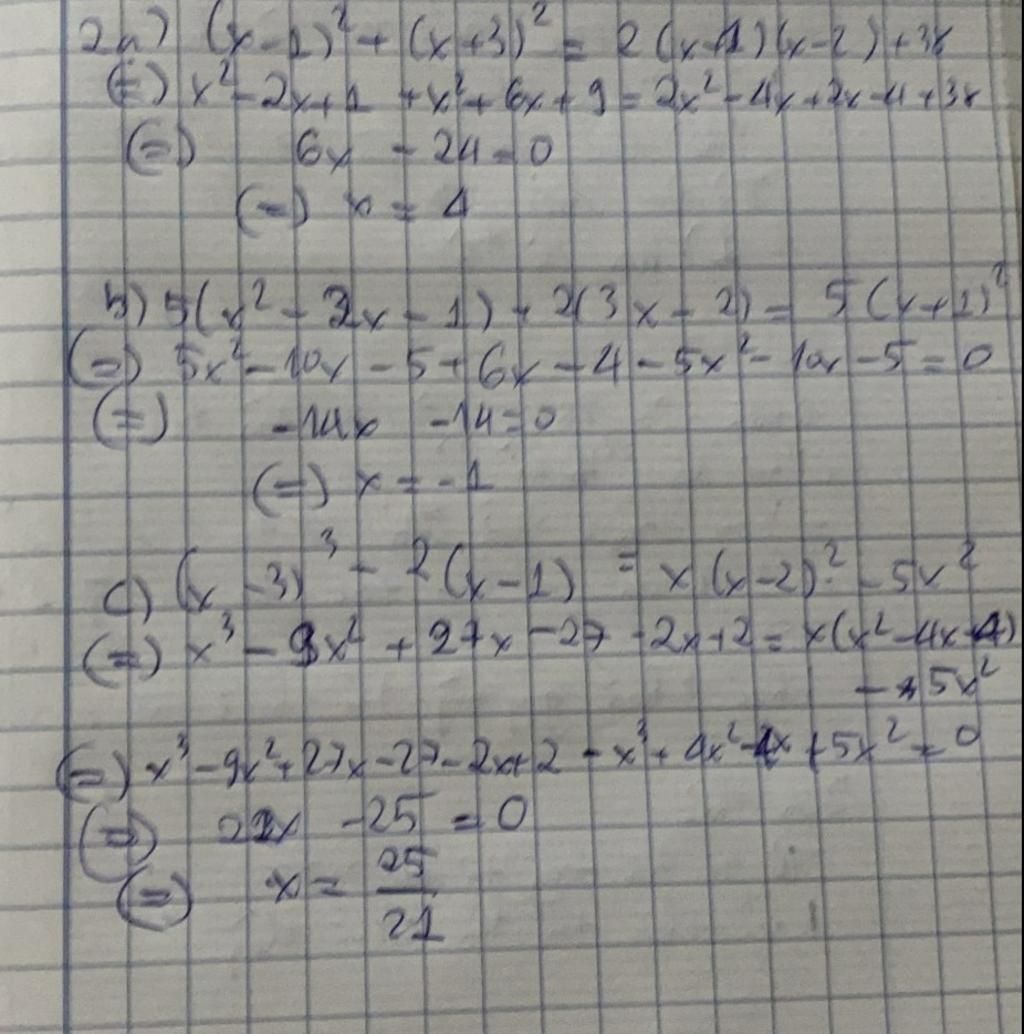 2a) (x-1)² + (x+3)² = 2(x+1)(x-2) + 38
(=) x² - 2x + 1 + x² + 6x + 9 = 2x² - 4x + 2x - 4 + 38
(=) 6x - 24 = 0
(=) x = 4
b) 5(x² - 2x - 1) + 2(3x - 2) = 5(x+1)²
(=) 5x² - 10x - 5 + 6x - 4 - 5x² - 10x - 5 = 0
(=) -14x - 14 = 0
(=) x = -1
c) (x - 3)³ - 2(x - 1) = x(x-2)² - 5x²
(=) x³ - 9x² + 27x - 27 - 2x + 2 = x(x² - 4x + 4)
- 5x²
(=) x³ - 9x² + 27x - 27 - 2x + 2 - x³ + 4x² - 4x + 5x² = 0
(=) 21x - 25 = 0
(=) x = 25/21